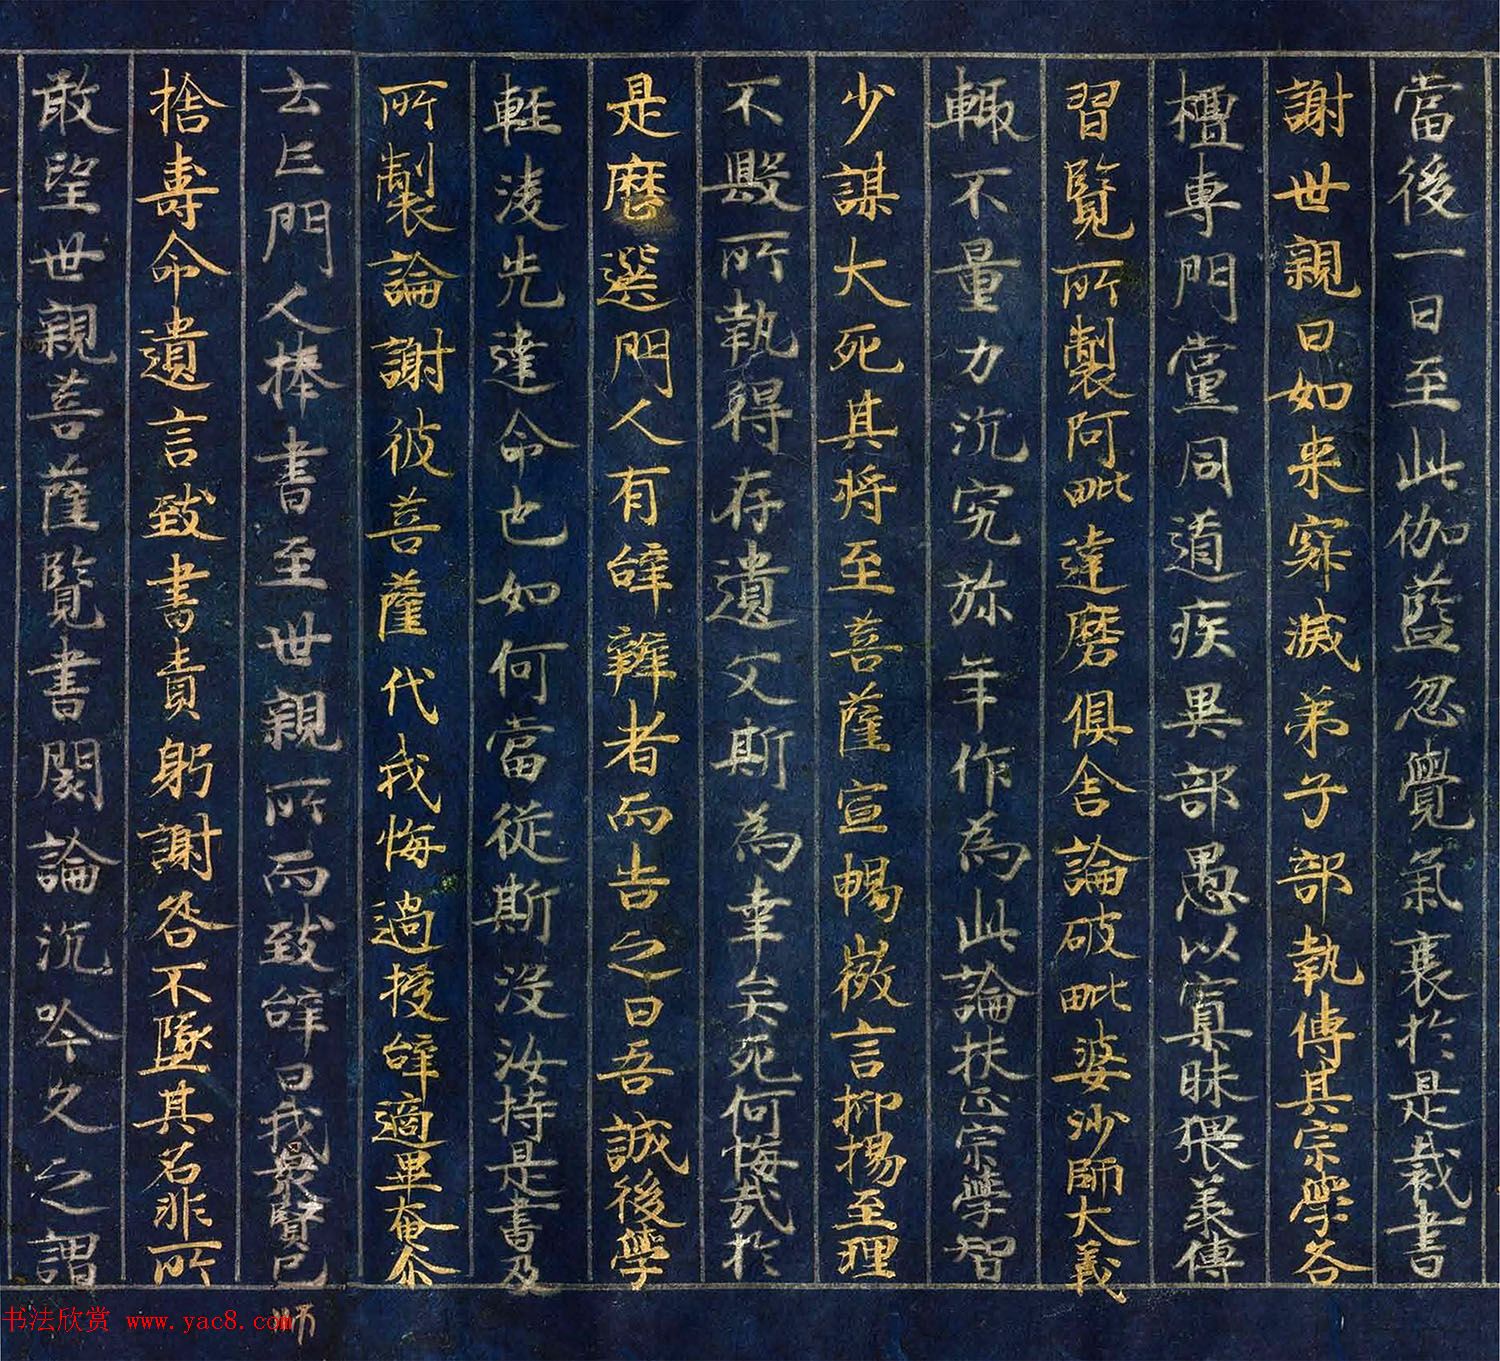 當後一日至此伽藍忽覺氣衰於是裁書
謝世親曰如来寂滅弟子部執傳其宗學各
檀專門黨同道疾異部愚以寡昧猥承傳
習覽所製阿毗達磨俱舍論破毗婆沙師大義
輙不量力沉究弥年作為此論扶正宗學智
少謀大死其将至菩薩宣暢微言抑揚至理
不毀所執得存遺文斯為幸矣死何悔哉於
是歷選門人有辝辯者而告之曰吾誠後學
輕淩先達命也如何當從斯沒汝持是書及
所製論謝彼菩薩代我悔過授辝適畢奄尒
云亡門人捧書至世親所而致辝曰我衆賢已
师
捨壽命遺言致書責躬謝咎不墜其名非所
敢望世親菩薩覽書閱論沉吟久之謂
书法欣赏 www.yac8.com